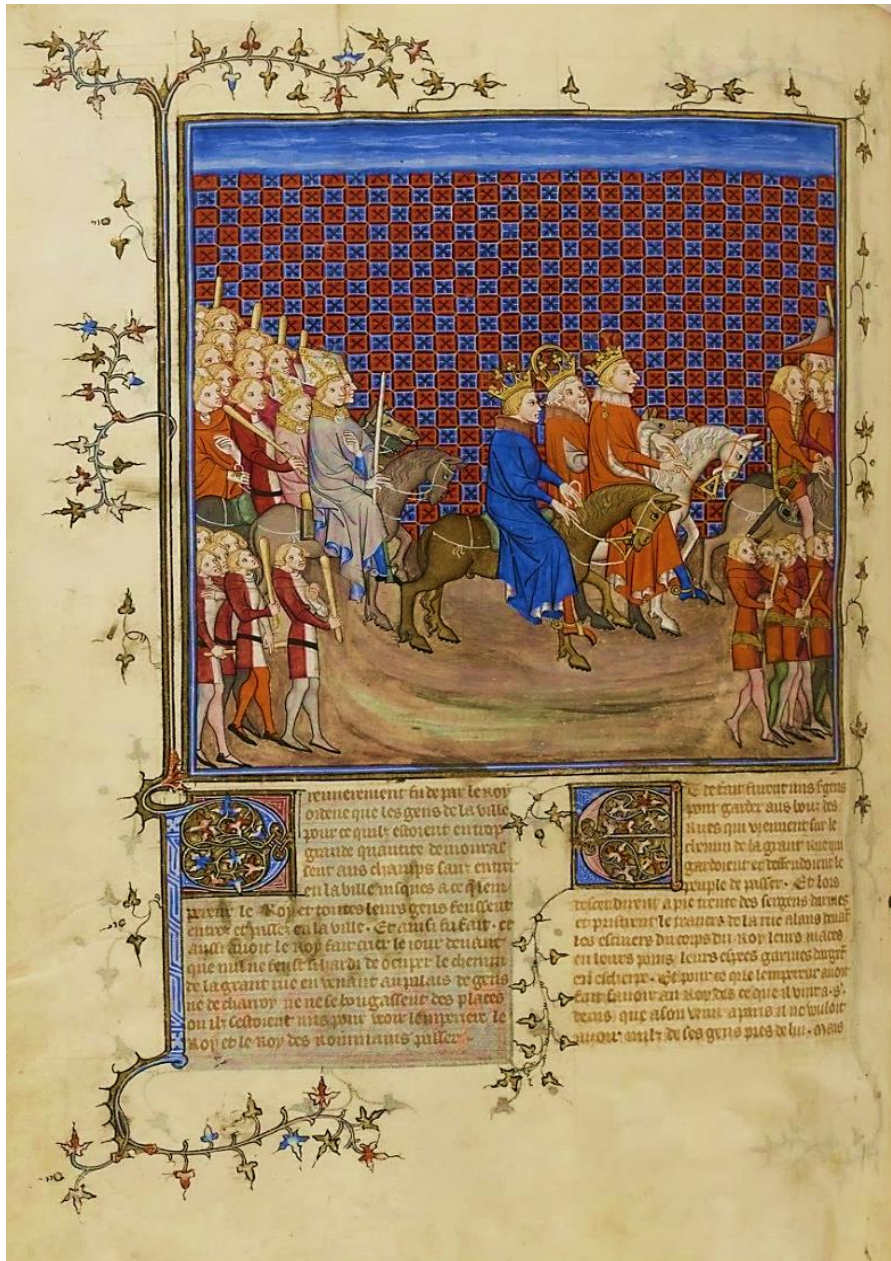 Premierement fu de par le Roy
ordene que les gens de la ville
pour ce quilz estoient en trop
grande quantite demouras
sent aus champs sanz entrer
en la ville iusques a ce q̃ lem
pereur le Roy et toutes leurs gens feussent
entrez et passez en la ville . Et ainsi fu fait . et
aussi auoit le Roy fait crier le iour deuant
que nul ne feust si hardi de ocuper le chemin
de la grant rue en venant au palais de gens
ne de charroy ne ne se bougassent des places
ou ilz sestoient mis pour veoir lempereur le
Roy et le Roy des Roumains passer .
Et de fait furent mis sgens
pour garder aus bouz des
rues qui viennent sur le
chemin de la grant rue qui
gardoient et deffendoient le
peuple de passer . Et lors
descendirent a pie trente des sergens darmes
et pristrent le trauers de la rue alans deuãt
les escuiers du corps du Roy leurs maces
en leurs poins leurs espees garnies dargẽt
en escherpe . Et pour ce que lempereur auoit
fait sauoir au Roy des ce que il vint a . s.
denis que a son venir a paris il ne vouloit
auoir nulz de ses gens pres de lui . mais